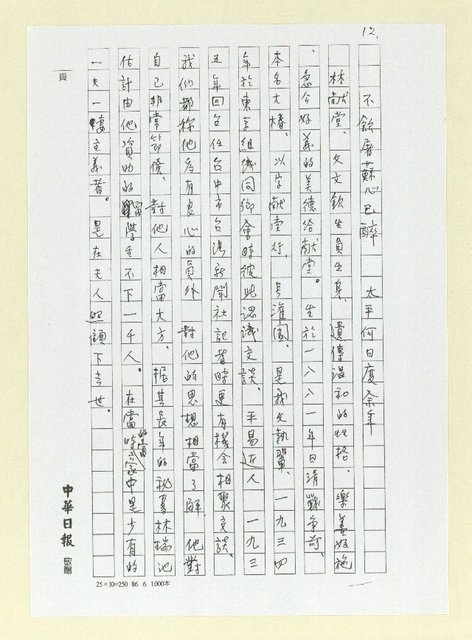 12.
不飲屠蘇心已醉 太平何日度余年
林献堂、父文欽生員出身、遺傳温和的性格、樂善好施
、急公好義的美德給献堂。生於一八八一年日清戰爭前、
本名大椿、以字献堂行、号灌園、是我父執輩、一九三四
年於東京組織同鄉會時彼此認識交談、平易近人 一九三
五年回台任台中市台湾新聞社記者時更有機会相聚交談。
我们都称他為有良心的員外 對他的思想相當了解、他對
自己非常節儉、對他人相當大方、據其長年的秘書林瑞池
估計由他資助的留學生不下一千人。在當時的富家中是少有的
一夫一妻主義者。是在夫人照顧下去世。
頁
中華日報 稿
25×10=250 86. 6. 1.000本